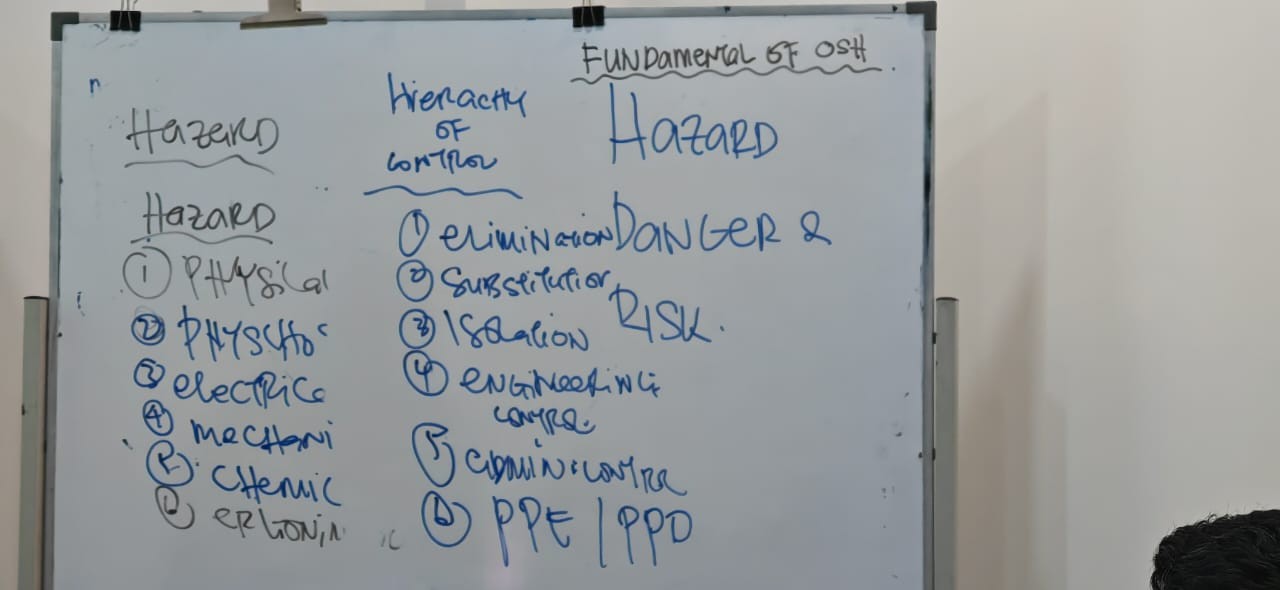 FUNDAMENTAL OF OSH
Hazard
Hazard
① Physical
② Physcho
③ electrica
④ mechani
⑤ Chemic
⑥ ergonin ic
Hierachy
of
control
① elimination
② Substitution
③ Isolation
④ engineering
control
⑤ admin. contrl
⑥ PPE / PPD
Hazard
Danger &
Risk.